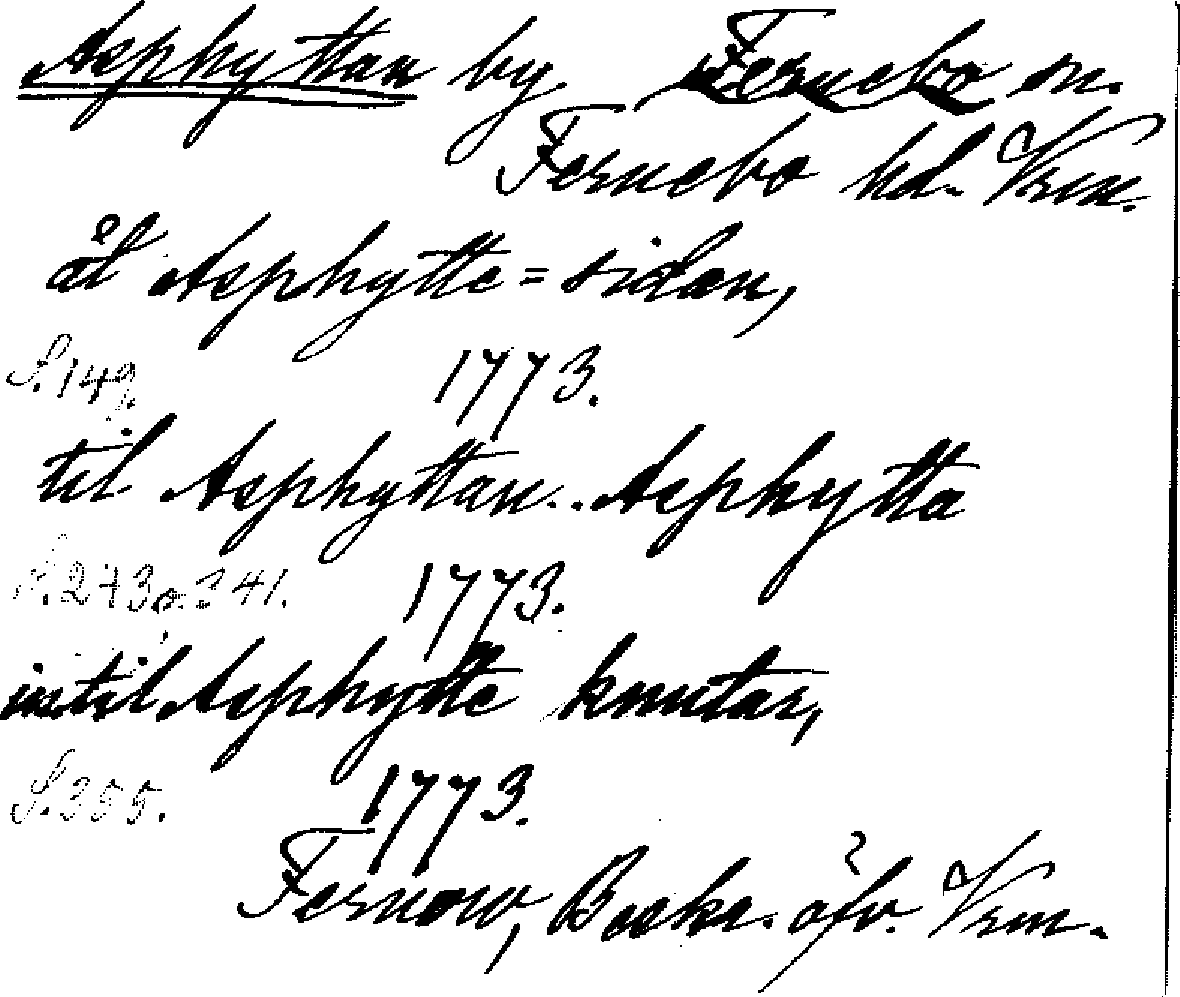 Asphyttan by Fernebo sn.
Fernebo hd. Vrm.
åt Asphytte=sidan,
S. 149. 1773.
til Asphyttan.. Asphytta
S. 273 o. 341. 1773.
intil Asphytte knutar,
S. 355. 1773.
Fernow, Beskr. öfv. Vrm.